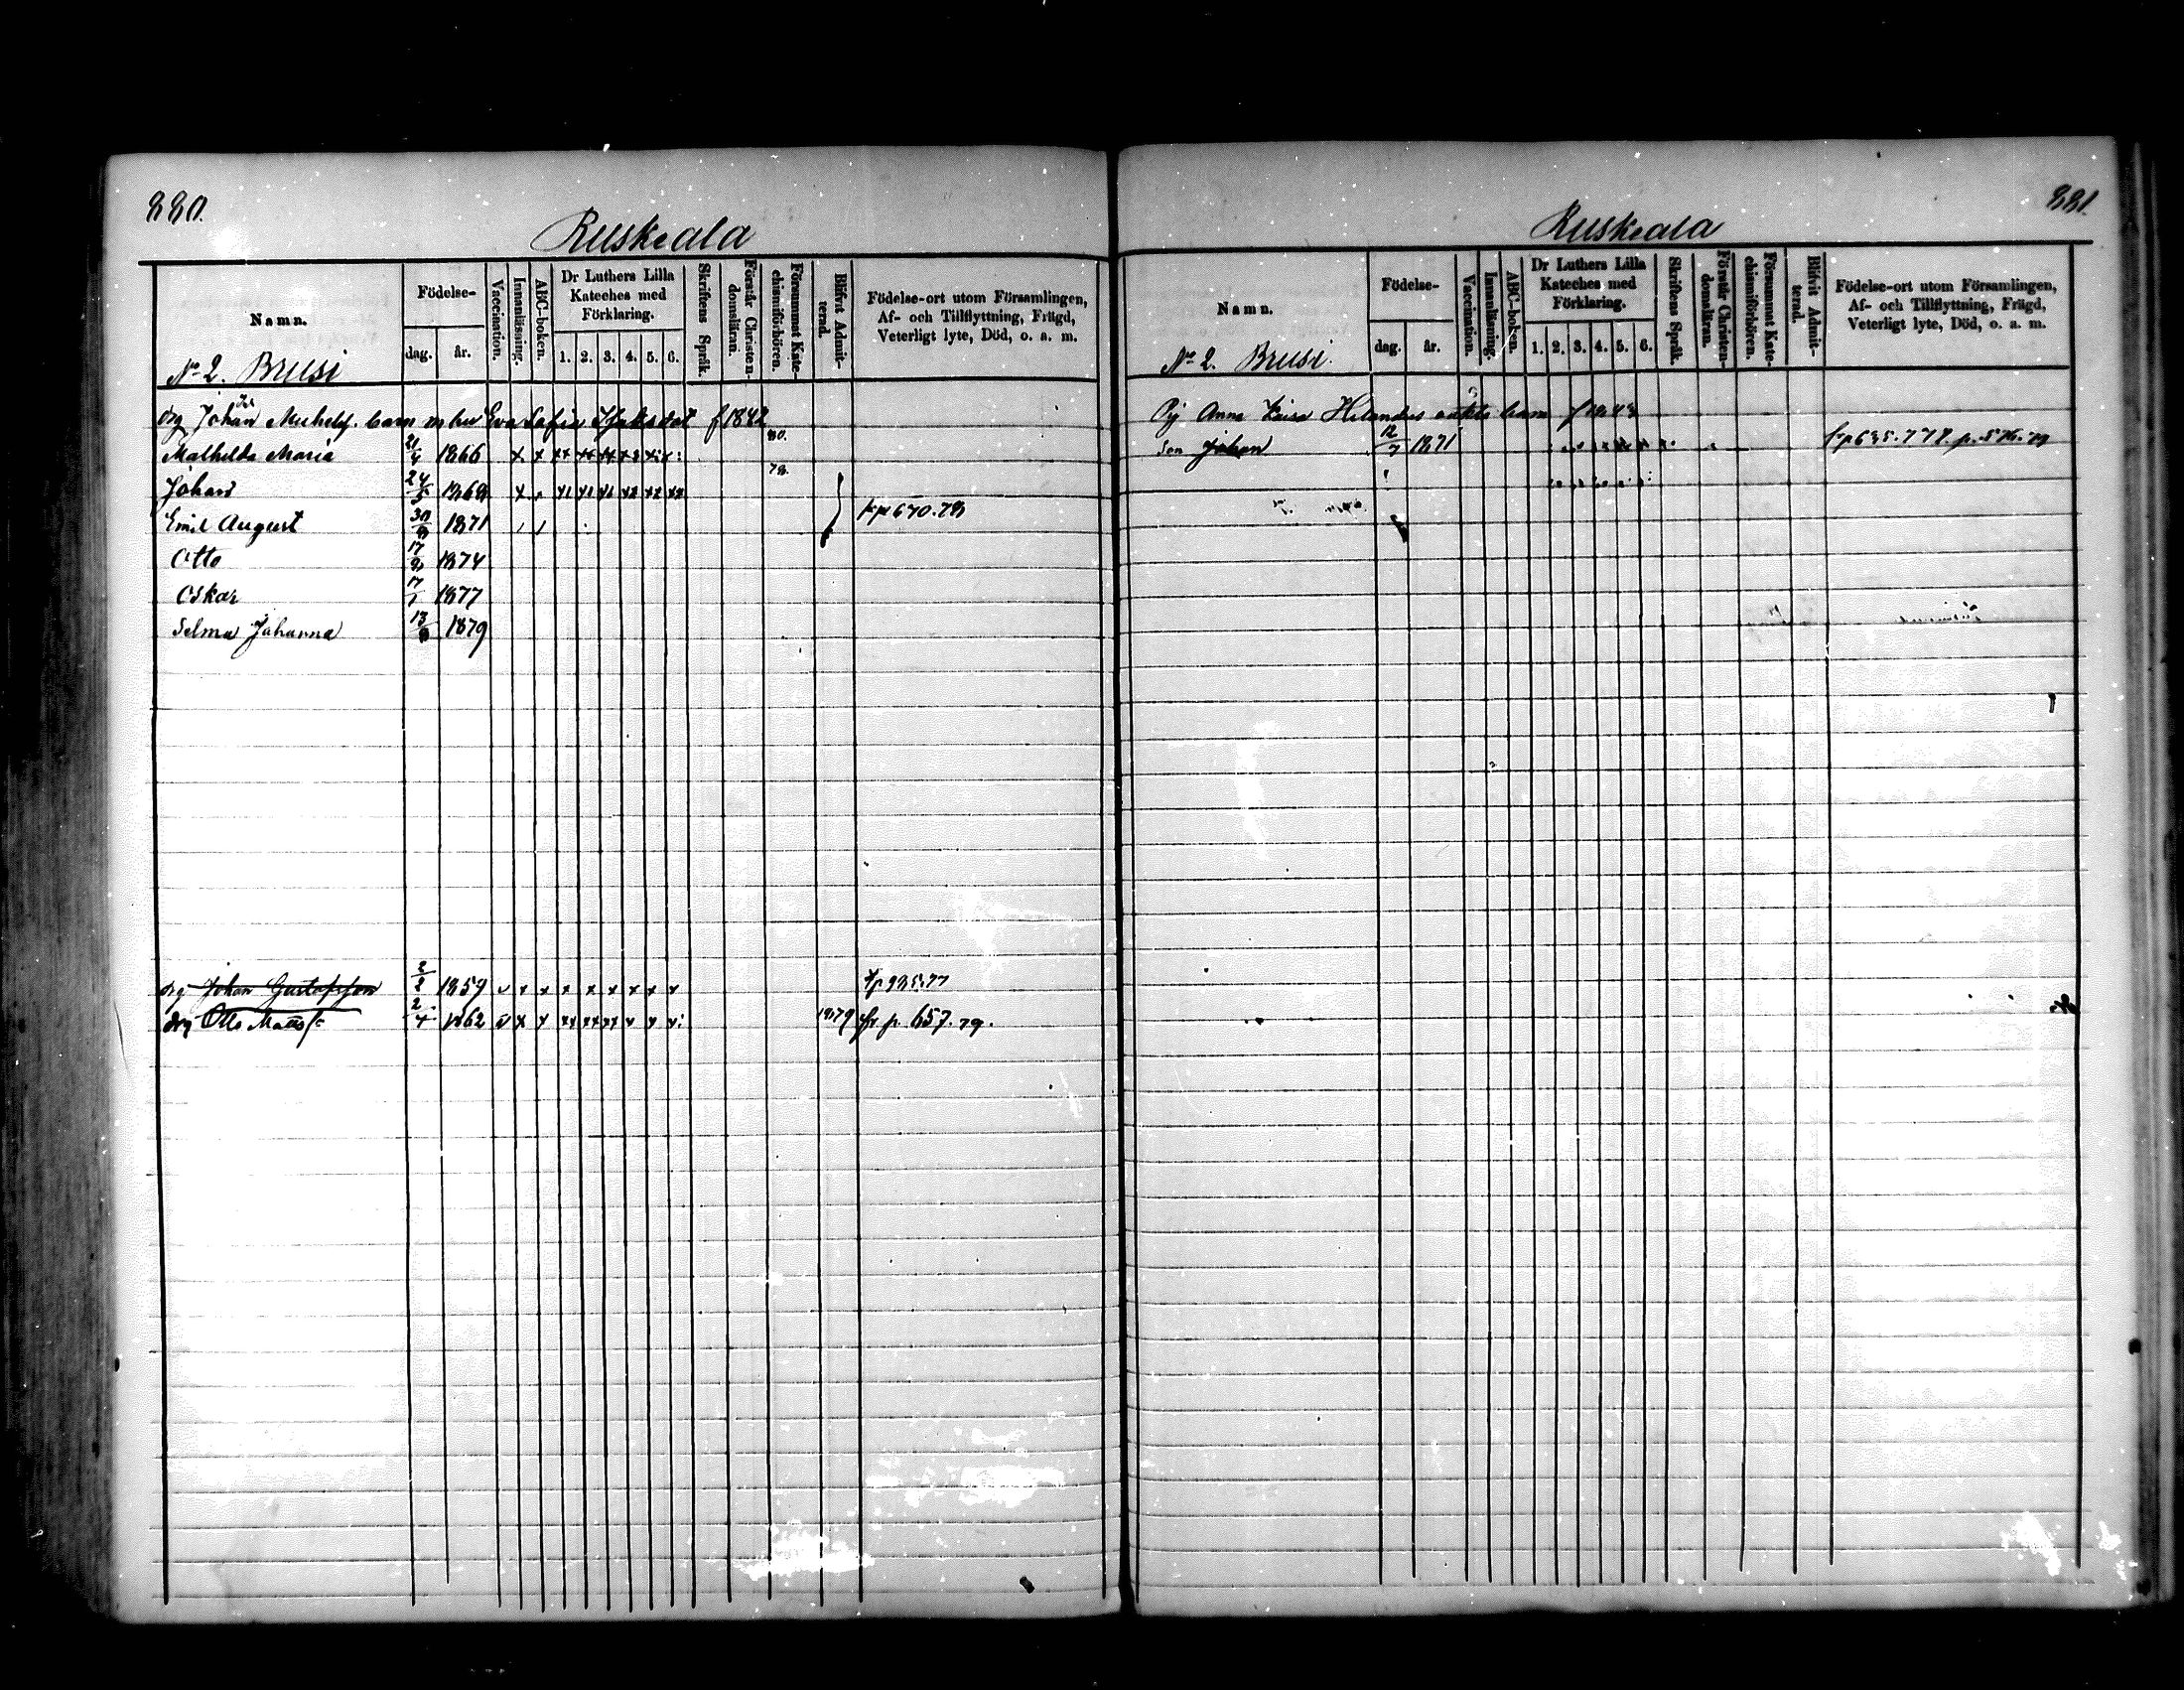 880.
Ruskeala
Namn.
Födelse-
dag.
år.
Vaccination.
Innanläsning.
ABC-boken.
Dr Luthers Lilla
Kateches med
Förklaring.
1. 2. 3. 4. 5. 6.
Skriftens Språk.
Förstår Christen-
domsläran.
Försummat Kate-
chismiförhören.
Blifvit Admit-
terad.
Födelse-ort utom Församlingen,
Af- och Tillflyttning, Frägd,
Veterligt lyte, Död, o. a. m.
No 2. Brusi
drg Johan Michelss. barn m hu Eva Sofia f 1842
Mathilda Maria 21/4 1866 80.
Johan 24/5 1868 78.
Emil August 30/8 1871 frp 670.78
Otto 17/8 1874
Oskar 17/1 1877
Selma Johanna 13/8 1879
drg Johan Gustafsson 2/2 1859 935.77
drg Otto Matts 2/4 1862 1879 fr p. 657.79.
881.
Ruskeala
Namn.
Födelse-
dag.
år.
Vaccination.
Innanläsning.
ABC-boken.
Dr Luthers Lilla
Kateches med
Förklaring.
1. 2. 3. 4. 5. 6.
Skriftens Språk.
Förstår Christen-
domsläran.
Försummat Kate-
chismiförhören.
Blifvit Admit-
terad.
Födelse-ort utom Församlingen,
Af- och Tillflyttning, Frägd,
Veterligt lyte, Död, o. a. m.
No 2. Brusi.
Pig Anna Kaisa Helanders oäkta barn f 1848
son Johan 12/7 1871 p. 576.79